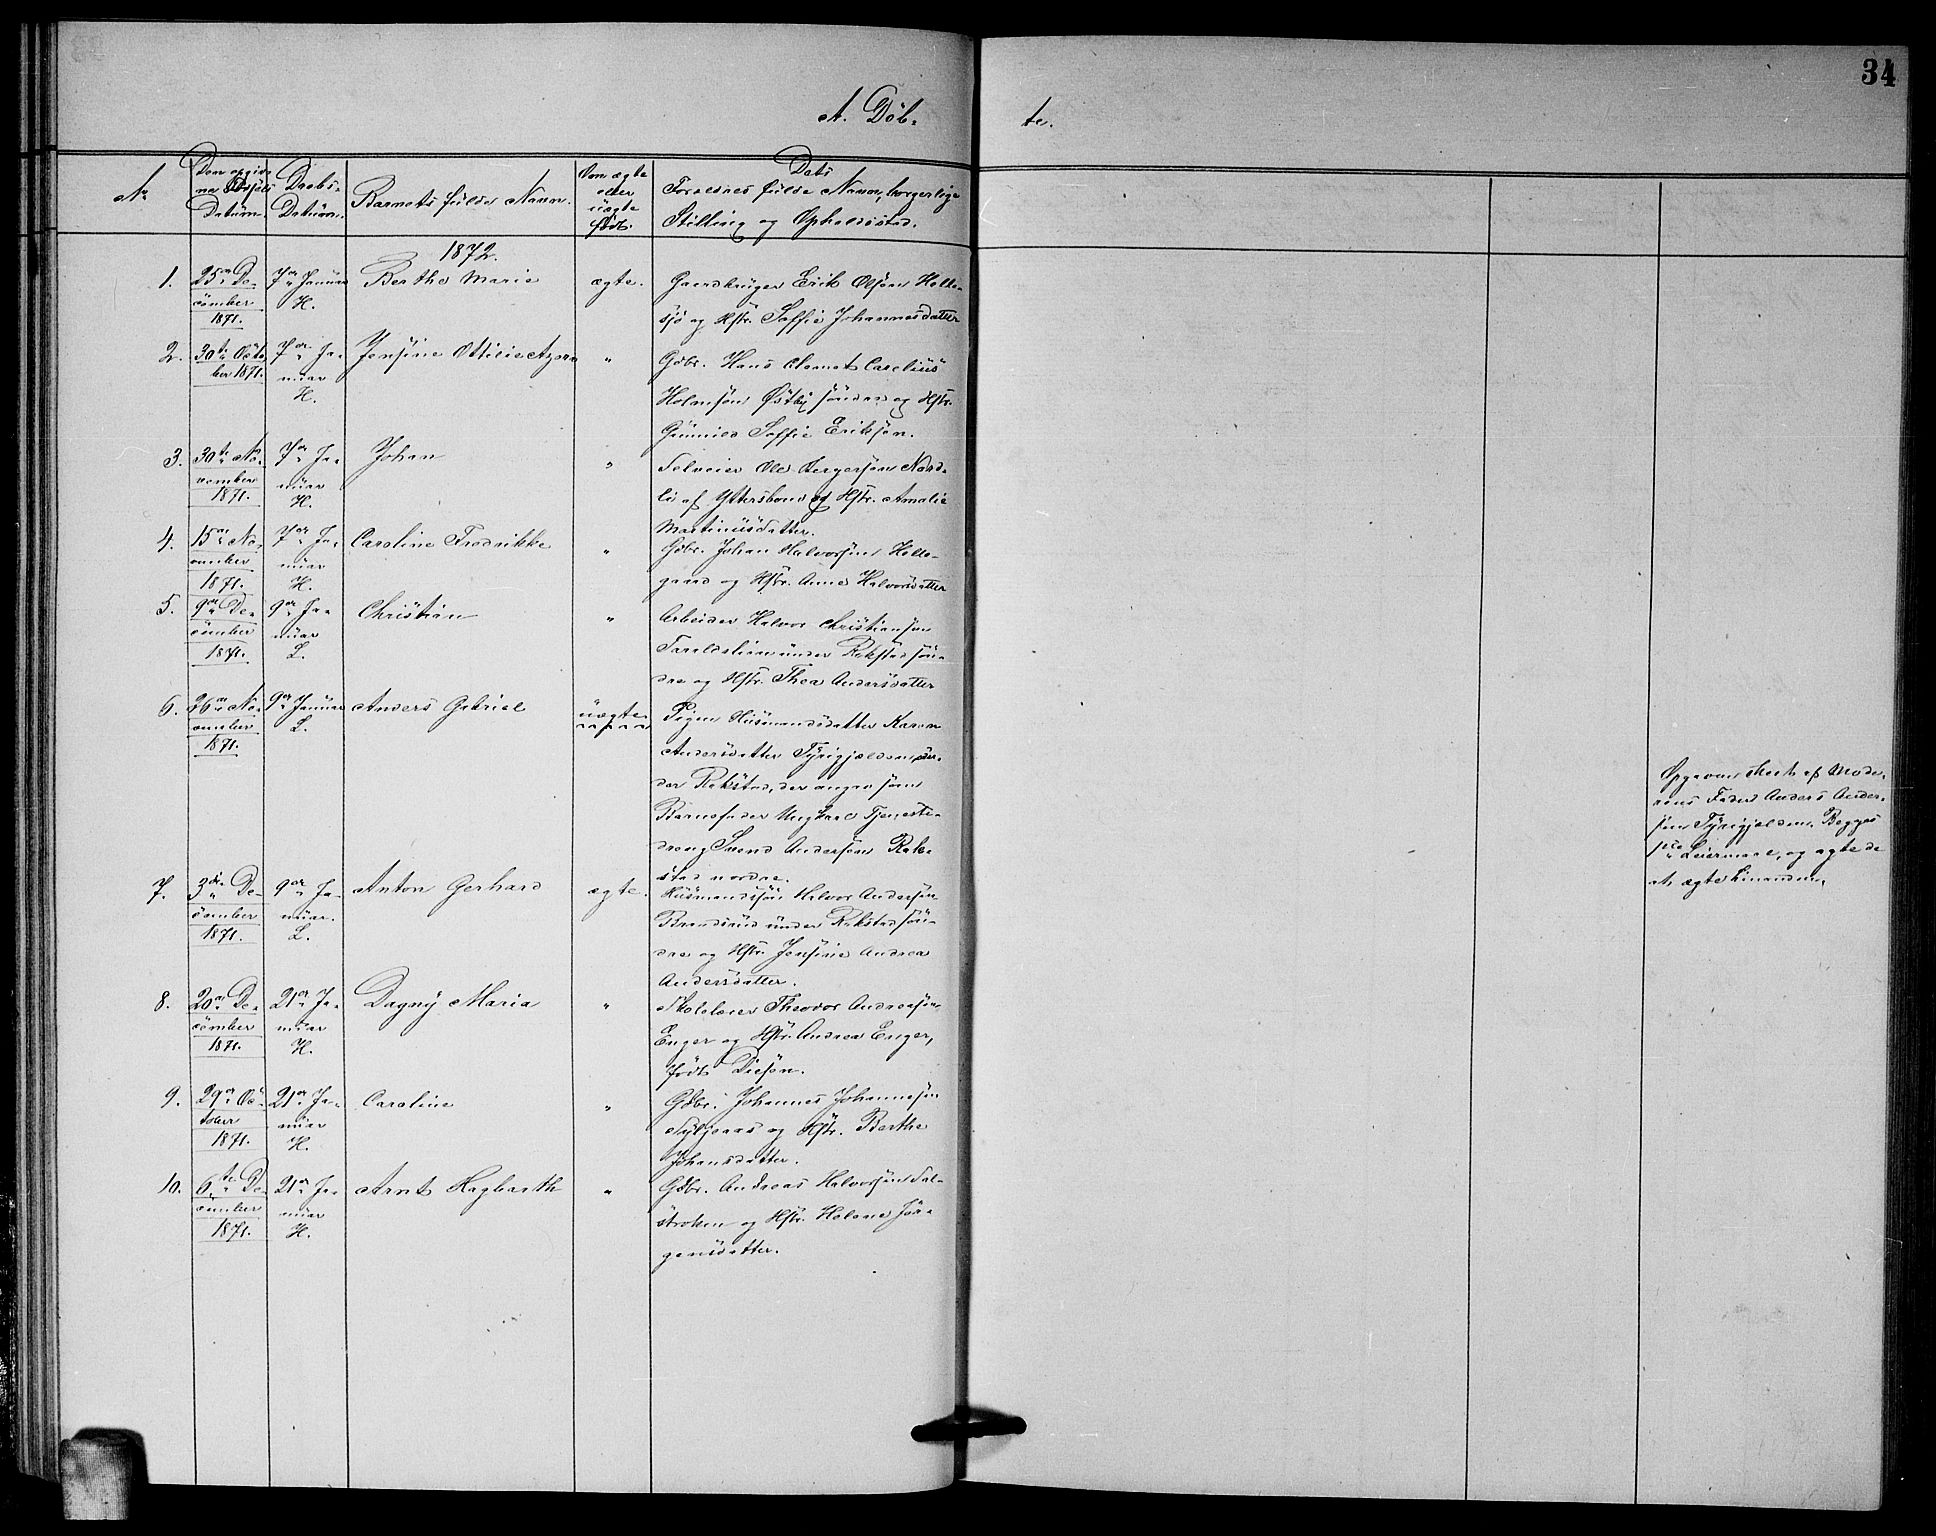 34
A. Döb-
te.
No
Den opgiv-
ne Fødsels
Datum.
Daabs-
Datum.
Barnets fulde Navn.
Om ægte
eller
uægte
født.
Dets
Forældres fulde Navn, borgerlige
Stilling og Opholdssted.
1872.
1.
25de De-
cember
1871.
7de Januar
H.
Berthe Marie
ægte.
Gaardbruger Erik Olsøn Holte-
sjø og Hstr. Soffie Johannesdatter
2.
30te Octo-
ber 1871.
7de Ja-
nuar
H.
Jensine Ottilie
"
Gdbr. Hans Clemet Carelius
Holmsøn Østby søndre og Hstr.
Gunnild Soffie Eriksøn.
3.
30te No-
vember
1871.
7de Ja-
nuar
H.
Johan
"
Selveier Ole Børgersøn Nord-
li af Yttersbond og Hstr. Amalie
Martinusdatter.
4.
15de No-
vember
1871.
7de Ja-
nuar
H.
Caroline Fredrikke
"
Gdbr. Johan Halvorsøn Holte-
gaard og Hstr. Anne Halvorsdatter
5.
9de De-
cember
1871.
9de Ja-
nuar
L.
Christian
"
Arbeider Halvor Christiansøn
Taraldslien under Rokstad søn-
dre og Hstr. Thea Andersdatter
6.
26de No-
vember
1871.
9de Januar
L.
Anders Gabriel
uægte
Pigen Husmandsdatter Karen
Andersdatter Tyrigjælden un-
der Rokstad, der angav som
Barnefader Ungkarl Tjeneste-
dreng Svend Andersøn Rok-
stad nordre.
Opgaven skeet af Mode-
rens Fader Anders Ander-
søn Tyrigjælden. Begges
1ste Leiermaal, og agte de
at ægte hinanden.
7.
3die De-
cember
1871.
9de Ja-
nuar.
L.
Anton Gerhard
ægte.
Husmandssøn Halvor Andersøn
Brandsrud under Rokstad søn-
dre og Hstr. Jensine Andrea
Andersdatter.
8.
20de De-
cember
1871.
21de Ja-
nuar
H.
Dagny Maria
"
Skolelærer Theodor Andreasøn
Enger og Hstr. Andrea Enger,
født Diesøn.
9.
29de Oc-
tober
1871.
21de Ja-
nuar
H.
Caroline
"
Gdbr. Johannes Johannesøn
Nylgaard og Hstr. Berthe
Johansdatter.
10.
6te De-
cember
1871.
21de Ja-
nuar
H.
Arnt Hagbarth
"
Gdbr. Andreas Halvorsøn Sal-
stroken og Hstr. Helene Jør-
gensdatter.